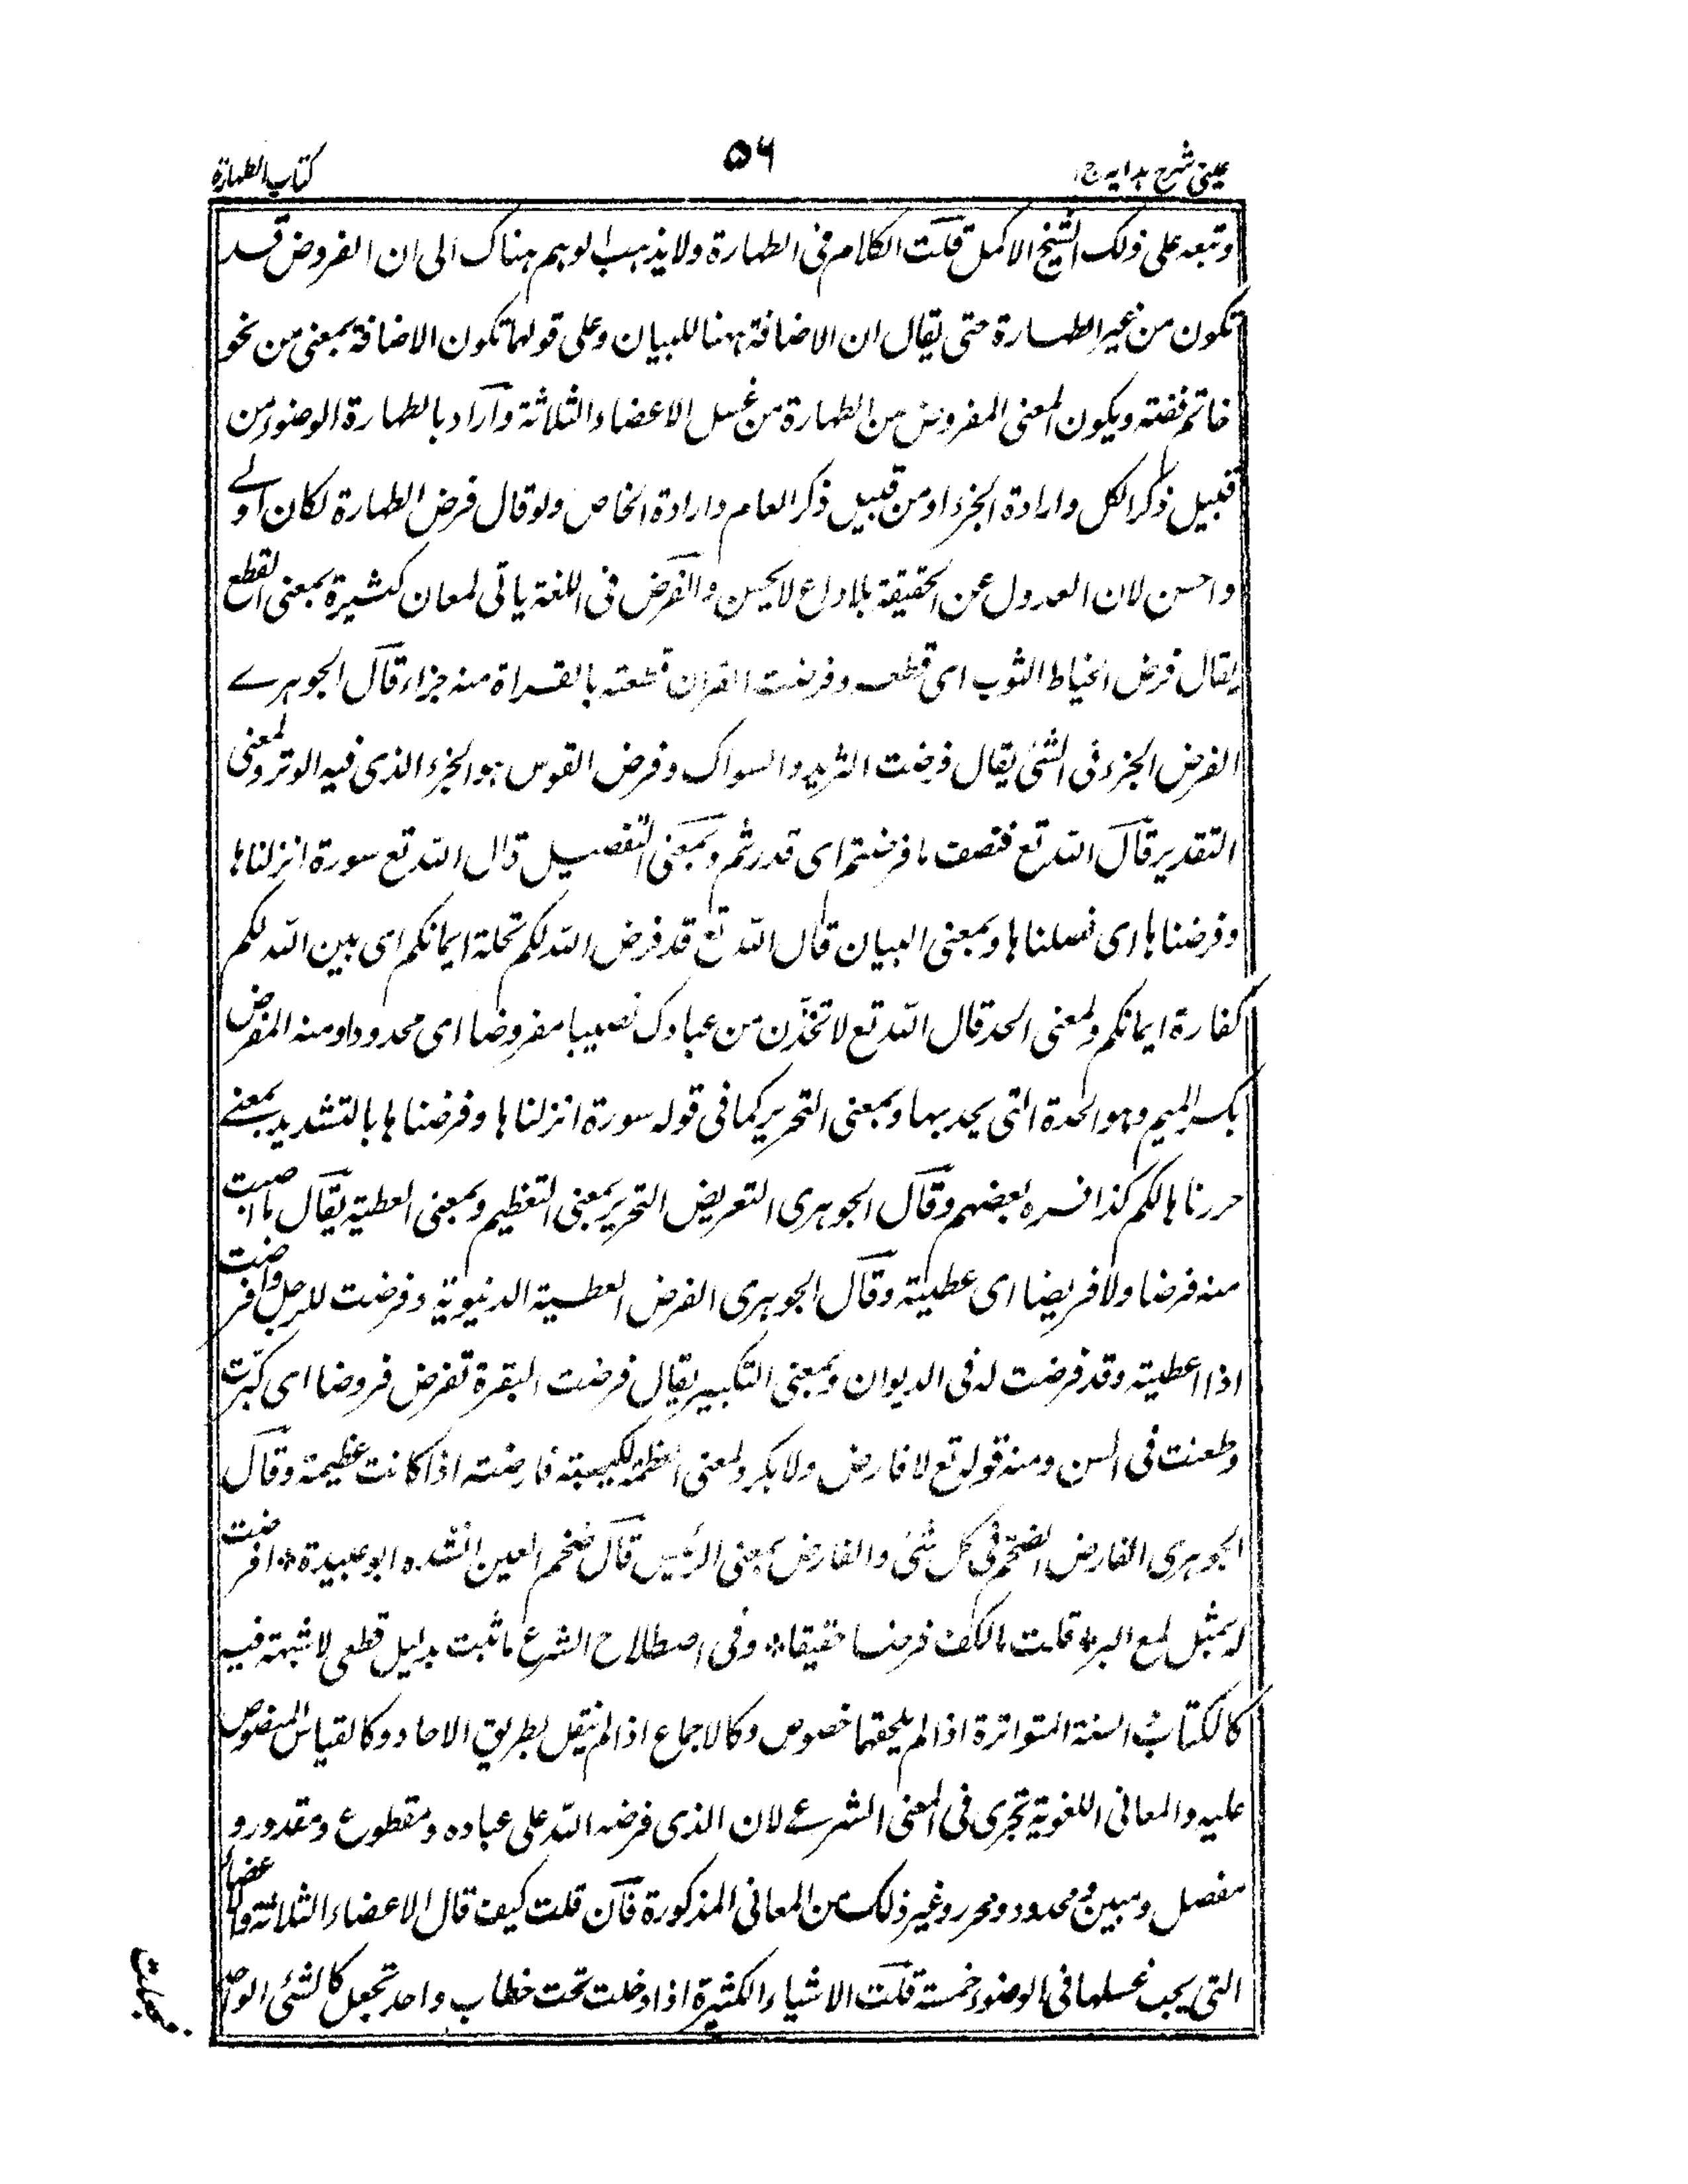 عینی شرح ہدایہ ج۱
۵۶
کتاب الطہارة
وتبعہ علی ذلک الشیخ الاکمل قلت الکلام فی الطہارة ولا یذہب الوہم ہناک الی ان الفروض قد
تکون من غیر الطہارة حتی یقال ان الاضافة ہہنا للبیان وعلی قولہما تکون الاضافة بمعنی من نحو
خاتم فضة ویکون المعنی المفروض من الطہارة من غسل الاعضاء الثلاثة وآراد بالطہارة الوضوء من
قبیل ذکر الکل وارادة الجزء او من قبیل ذکر العام وارادة الخاص ولو قال فرض الطہارة لکان اولے
واحسن لان العدول عن الحقیقة بلا داع لا یحسن والفرض فی اللغة یاتی لمعان کثیرة بمعنی القطع
یقال فرض الخیاط الثوب ای قطعہ وفرضت القرآن قطعتہ بالقراة منہ جزاء قال الجوہرے
الفرض الجزء فی الشئ یقال فرضت الثرید والسواک وفرض القوس ہو الجزء الذی فیہ الوتر وبمعنی
التقدیر قال اللہ تع فنصف ما فرضتم ای قدرتم وبمعنی التفصیل قال اللہ تع سورة انزلناہا
وفرضناہا ای فصلناہا وبمعنی البیان قال اللہ تع قد فرض اللہ لکم تحلة ایمانکم ای بین اللہ لکم
کفارة ایمانکم وبمعنی الحد قال اللہ تع لاتخذن من عبادک نصیبا مفروضا ای محدودا ومنہ المفرض
بکسر المیم وہو الحدة التی یحد بہا وبمعنی التحریر کما فی قولہ سورة انزلناہا وفرضناہا بالتشدید بمعنے
حررناہا لکم کذا فسرہ بعضہم وقال الجوہری التعریض التحریر بمعنی التعظیم وبمعنی العطیة یقال ما اصبت
منہ فرضا ولا فریضا ای عطیتہ وقال الجوہری الفرض العطیة الدنیویة وفرضت للرجل وافرضت
اذا اعطیتہ وقد فرضت لہ فی الدیوان وبمعنی التکبیر یقال فرضت البقرة تفرض فروضا ای کبرت
وطعنت فی السن ومنہ قولہ تع لا فارض ولا بکر وبمعنی العظمة لحیتہ فارضتہ اذا کانت عظیمة وقال
الجوہری الفارض الضخم فی کل شئ والفارض بمعنی الرئیس قال ضخم العین انشدہ ابو عبیدة * افرضت
لہ بمثل لمع البر * قلت بالکف فرضا خفیفا * وفی اصطلاح الشرع ما ثبت بدلیل قطعی لا شبہة فیہ
کالکتاب والسنة المتواترة اذا لم یلحقہا خصوص وکالاجماع اذا لم ینقل بطریق الاحاد وکالقیاس المنصوص
علیہ والمعانی اللغویة تجری فی المعنی الشرعے لان الذی فرضہ اللہ علی عبادہ ومقطوع ومقدور و
مفصل ومبین ومحدود ومحرر وغیر ذلک من المعانی المذکورة فان قلت کیف قال الاعضاء الثلاثة والاعضاء
التی یجب غسلہا فی الوضوء خمسة قلت الاشیاء الکثیرة اذا دخلت تحت خطاب واحد تجعل کالشئ الواحد